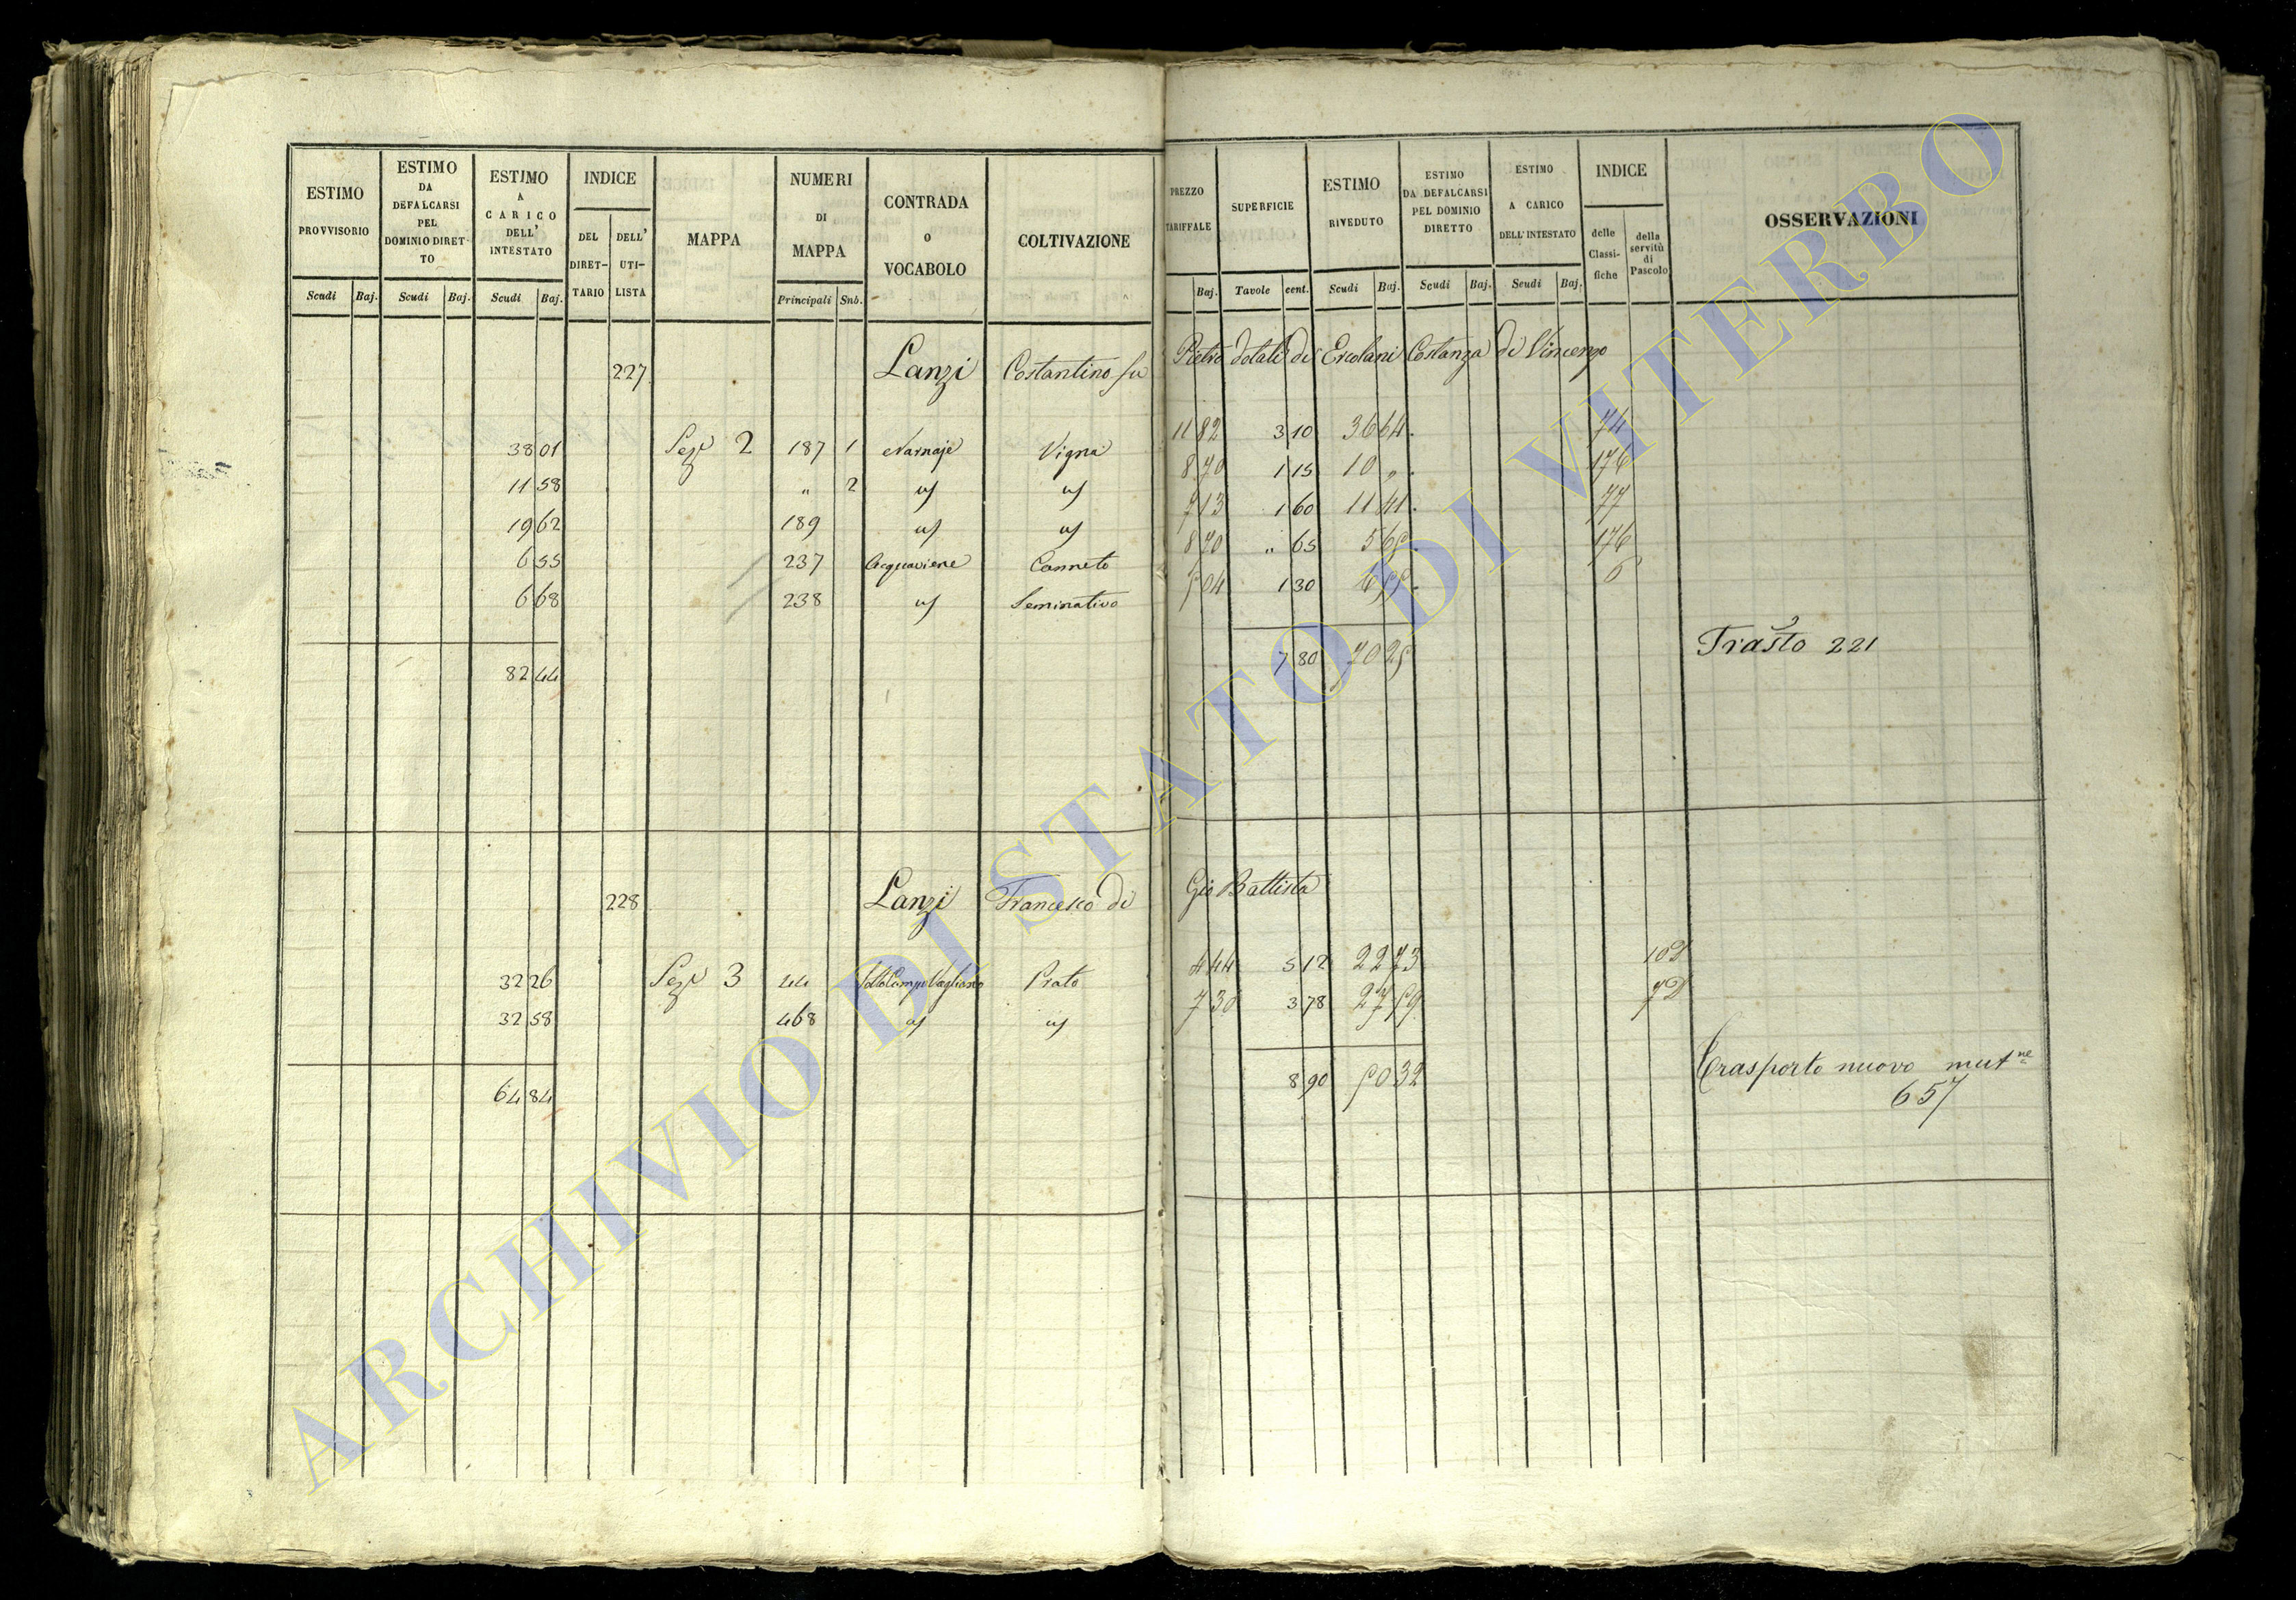 ESTIMO PROVVISORIO
Scudi Baj.
ESTIMO DA DEFALCARSI PEL DOMINIO DIRET-TO
Scudi Baj.
ESTIMO A CARICO DELL' INTESTATO
Scudi Baj.
INDICE
DEL DIRET-TARIO
DELL' UTI-LISTA
MAPPA
NUMERI DI MAPPA
Principali Sub.
CONTRADA o VOCABOLO
COLTIVAZIONE
PREZZO TARIFFALE
Baj.
SUPERFICIE
Tavole cent.
ESTIMO RIVEDUTO
Scudi Baj.
ESTIMO DA DEFALCARSI PEL DOMINIO DIRETTO
Scudi Baj.
ESTIMO A CARICO DELL' INTESTATO
Scudi Baj.
INDICE
delle Classi-fiche
della servitù di Pascolo
OSSERVAZIONI
227 Lanzi Costantino fu Pietro dotali di Ercolani Costanza di Vincenzo
38 01 Sezе 2 187 1 Narnaje Vigna 11 82 3 10 36 64 74
11 58 " 2 uf uf 8 70 1 15 10 " 176
19 62 189 uf uf 7 13 1 60 11 41 77
6 55 237 Acquaviene Canneto 8 70 " 65 5 65 176
6 68 238 uf Seminativo 5 04 1 30 6 55 6
82 44 7 80 70 25 Trasto 221
228 Lanzi Francesco di Gio Battista
32 26 Sezе 3 44 Prato 4 44 5 12 22 73 10
32 58 468 uf uf 7 30 3 78 27 59 7
64 84 8 90 50 32 Trasporto nuovo mutne
657
ARCHIVIO DI STATO DI VITERBO